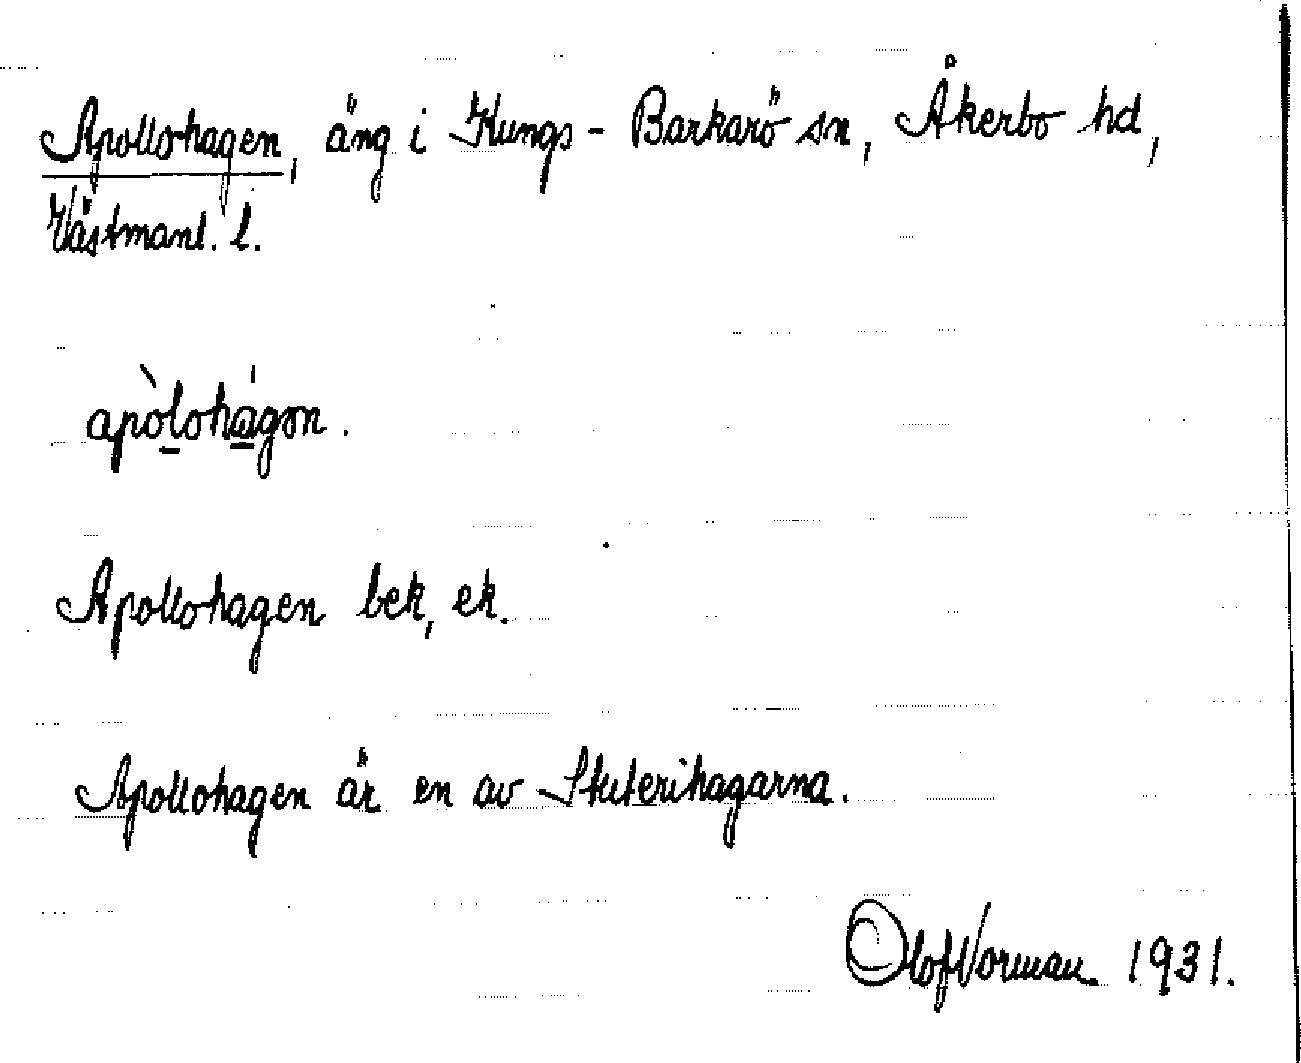 Apollohagen, äng i Kungs-Barkarö sn, Åkerbo hd,
Västmanl. l.
apòlohágən.
Apollohagen bek, ek.
Apollohagen är en av Stuterihagarna.
Olof Norman 1931.